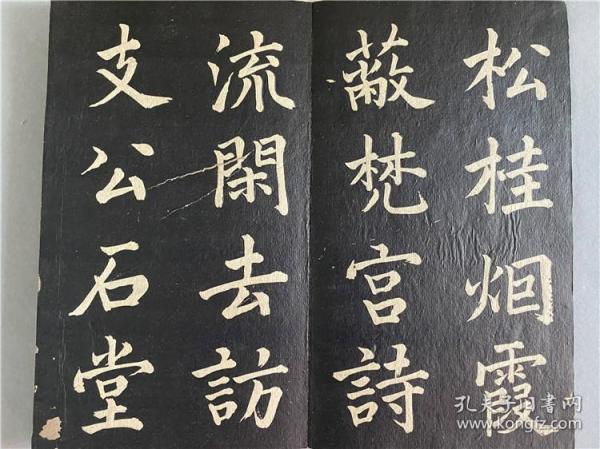 松桂烟霞
蔽梵宫詩
流閑去訪
支公石堂
孔夫子旧書网
www.kongfz.com